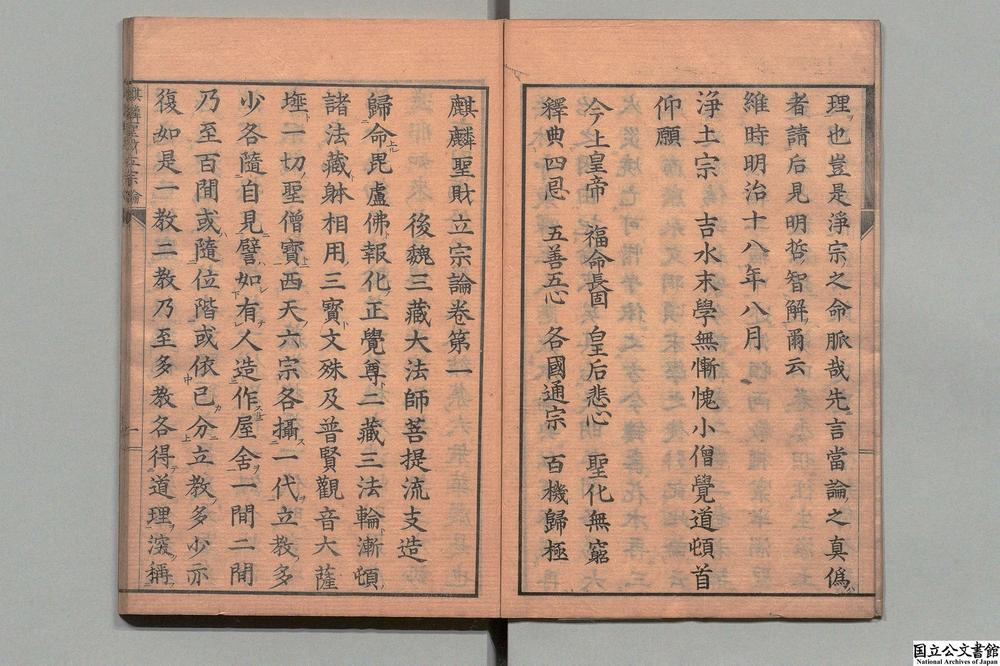 理也豈是淨宗之命脈哉先言當論之真僞
者請后見明哲智解爾云
維時明治十八年八月
淨土宗 吉水末學無慚愧小僧覺道頓首
仰願
今上皇帝 福命長固 皇后悲心 聖化無窮
釋典四恩 五善五心 各國通宗 百機歸極
麒麟聖財立宗論卷第一
後魏三藏大法師菩提流支造
歸命毘盧佛報化正覺尊二藏三法輪漸頓
諸法藏躰相用三寳文殊及普賢觀音六薩
埵一切聖僧寳西天六宗各攝一代立教多
少各隨自見譬如有人造作屋舍一間二間
乃至百間或隨位階或依己分立教多少亦
復如是一教二教乃至多教各得道理深稱
麒麟聖財立宗論
一
国立公文書館
National Archives of Japan